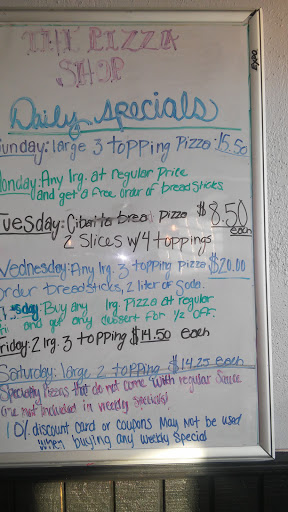 THE PIZZA
SHOP
Daily Specials
Sunday: large 3 topping Pizza: 15.50
Monday: Any lrg. at regular Price
and get a free order of breadsticks
Tuesday: Cibatta bread Pizza $8.50
each
2 Slices w/4 toppings
Wednesday: Any lrg. 3 topping pizza $20.00
order breadsticks, 2 liter of soda.
sday: Buy any lrg. Pizza at regular
and get any dessert for 1/2 off.
Friday: 2 lrg. 3 topping $14.50 each
Saturday: large 2 topping $14.25 each
Specialty Pizzas that do not come with regular Sauce
are not included in weekly specials!
10% discount card or coupons may not be used
when buying any weekly special
EXPO